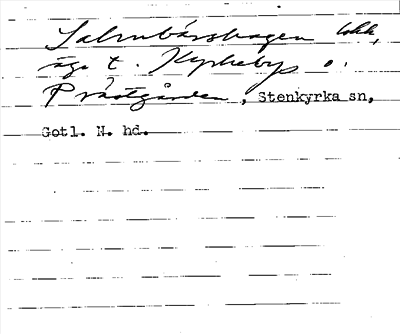 Salmbärshagen lokk,
äga t. Kyrkebys o.
Prästgården, Stenkyrka sn,
Gotl. N. hd.